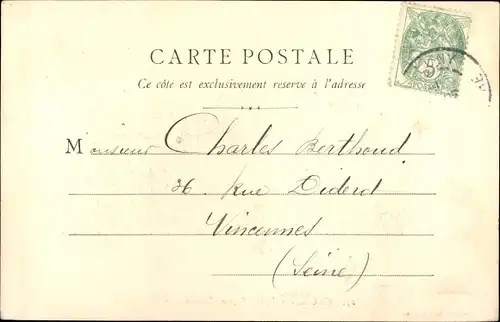 CARTE POSTALE
Ce côté est exclusivement reserve à l'adresse
Monsieur Charles Berthoud
36 Rue Diderot
Vincennes
(Seine)
5